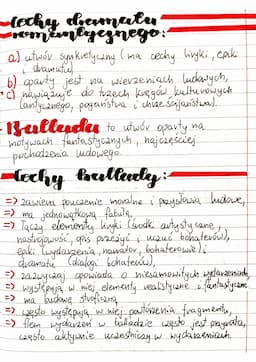 Cechy dramatu
romantycznego:
a) utwór synkretyczny (ma cechy liryki, epiki
i dramatu)
b) oparty jest na wierzeniach ludowych,
c) nawiązuje do trzech kręgów kulturowych
(antycznego, pogaństwa i chrześcijaństwa).
Ballada to utwór oparty na
motywach fantastycznych, najczęściej
pochodzenia ludowego.
Cechy ballady:
=> zawiera pouczenie moralne i przysłowia ludowe,
=> ma jednowątkową fabułę,
=> łączy elementy liryki (środki artystyczne,
nastrojowość, opis przeżyć i uczuć bohaterów),
epiki (wydarzenia, narrator, bohaterowie) i
dramatu (dialogi bohaterów),
=> zazwyczaj opowiada o niesamowitych wydarzeniach,
=> występują w niej elementy realistyczne i fantastyczne
=> ma budowę stroficzną,
=> często występują w niej powtórzenia fragmentu,
=> tłem wydarzeń w balladzie często jest przyroda,
często aktywnie uczestniczy w wydarzeniach